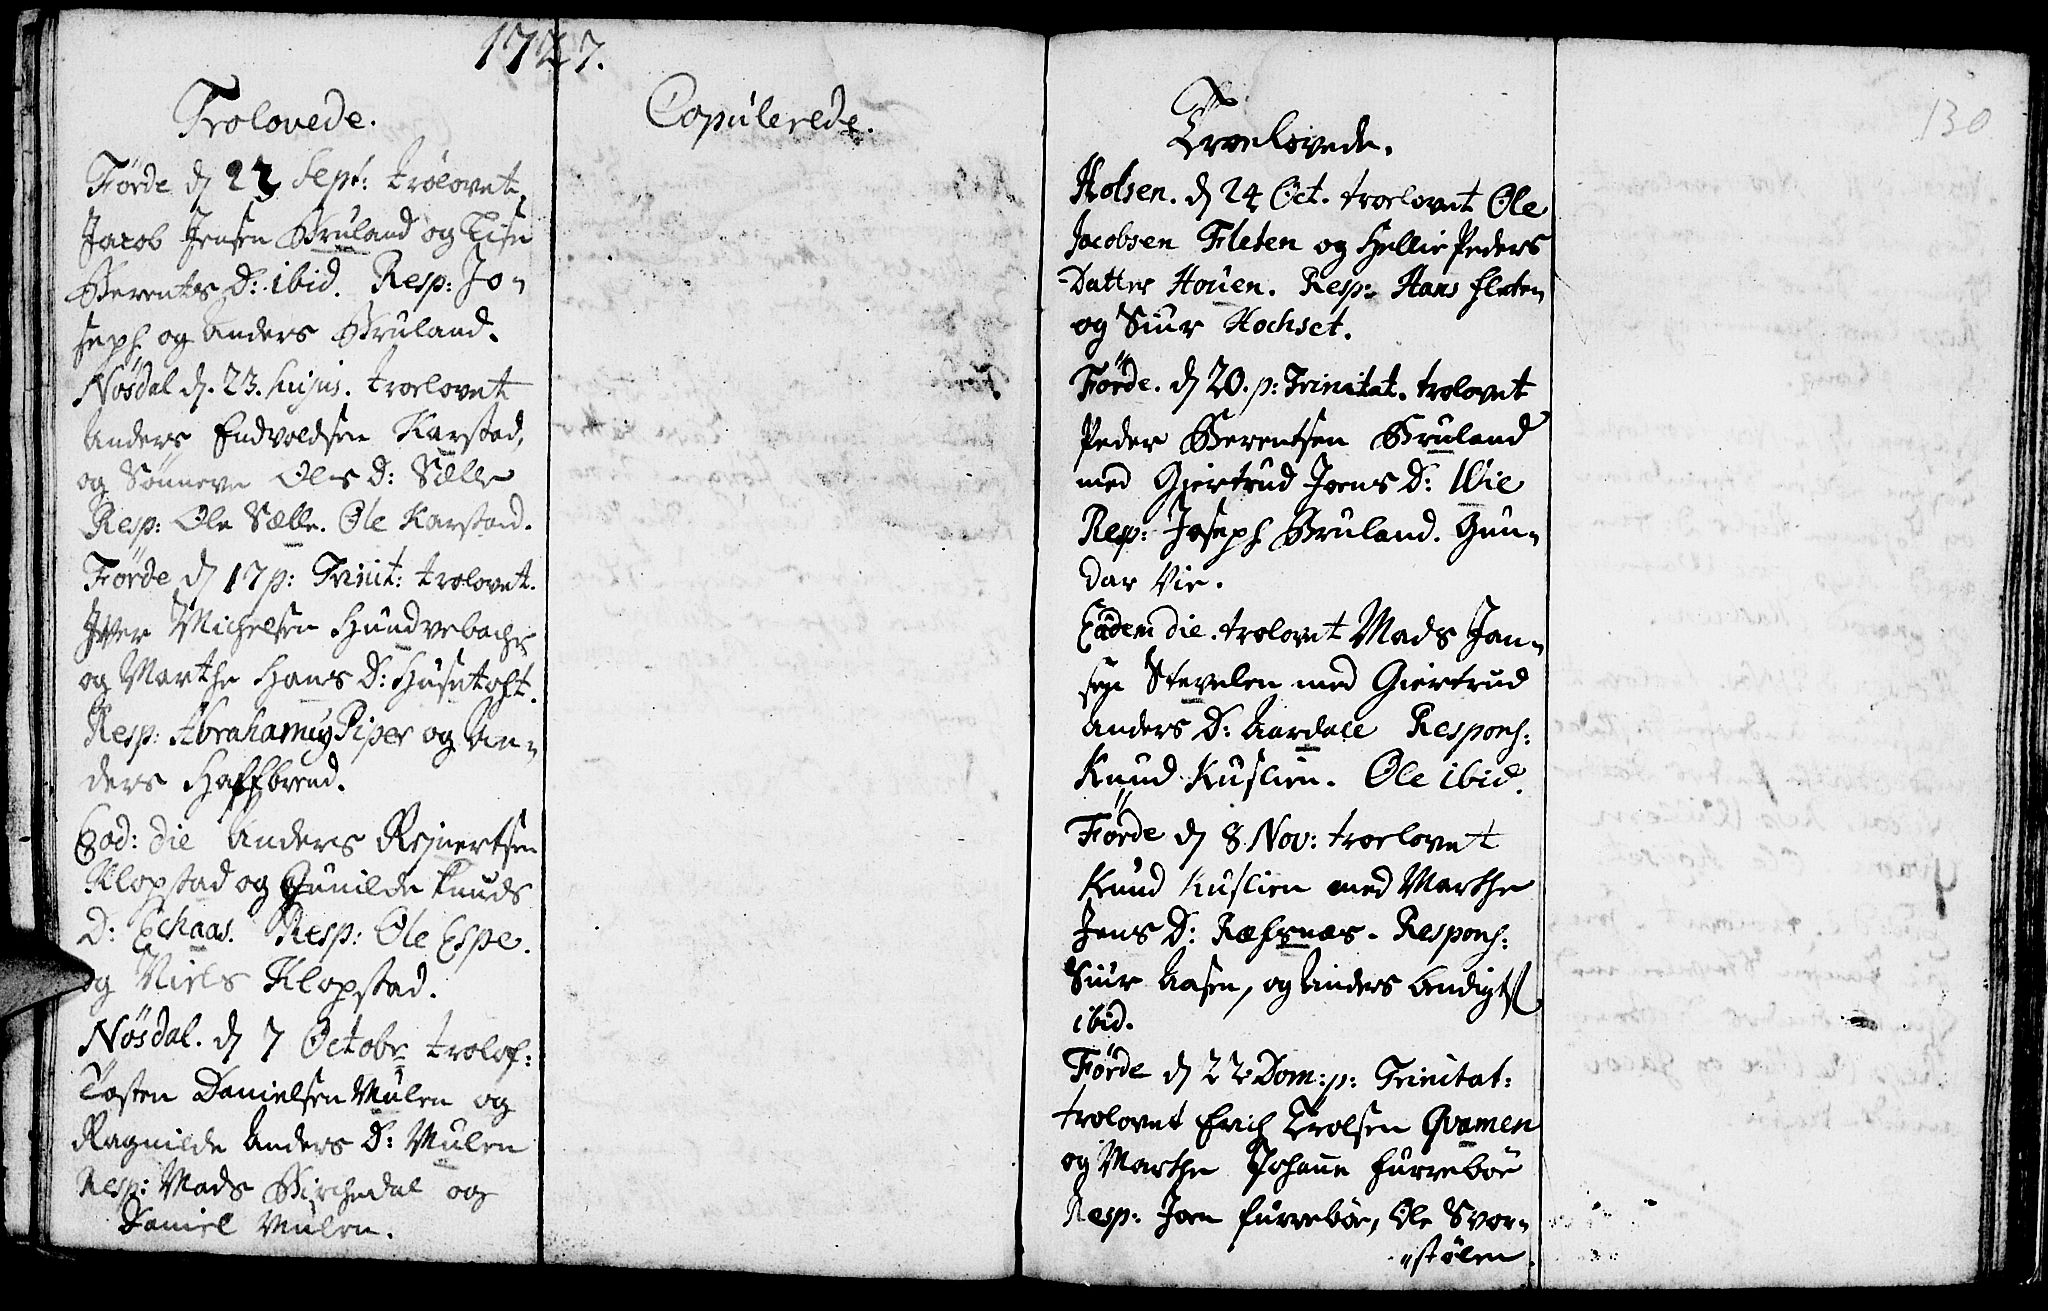 1727.
Trolovede.
Førde d 22 Sept: trolovet
Jacob Jensen Bruland og Lisu
Berents D: ibid. Resp: Jo-
seph og Anders Bruland.
Nøsdal d. 23. hujus. troelovet
Anders Endvoldsen Karstad,
og Sønneve Oles D: Sælle
Resp: Ole Sælle. Ole Karstad.
Førde d 17 p: Trinit: trolovet.
Iver Michelsen Hundvebache
og Marthe Hans D: Husetoft.
Resp: Abrahamus Piper og An-
ders Haffbrend.
Eod: die Anders Rejnertsen
Klopstad og Gunilde Knuds
D: Eckaas. Resp: Ole Espe.
og Niels Klopstad.
Nøsdal. d 7 Octobr trolof:
Tosten Danielsen Mulen og
Ragnilde Anders D: Mulen
Resp: Mads Birchedal og
Daniel Mulen.
Copulerede.
130
Troelovede.
Holsen. d 24 Oct. troelovet Ole
Jacobsen Fleten og Hellie Peders
Datter Houen. Resp: Hans Fleten
og Siur Hochset.
Førde. d 20. p: Trinitat. trolovet
Peder Berentsen Bruland
med Gjertrud Joens D: Wie
Resp: Joseph Bruland. Gun-
dar Vie.
Eadem die. trolovet Mads Jan-
sen Stevelen med Giertrud
Anders D: Aardall Respons:
Knud Kuslien. Ole ibid.
Førde d 8 Nov: troelovet
Knud Kuslien med Marthe
Jens D: Ræfsnæs. Respons:
Siur Aasen, og Anders Bendigts
ibid.
Førde d 22 Dom: p: Trinitat:
trolovet Erich Trolsen Qvamen
og Marthe Johanne Furrebøe
Resp: Joen Furrebøe, Ole Svor-
støLen.